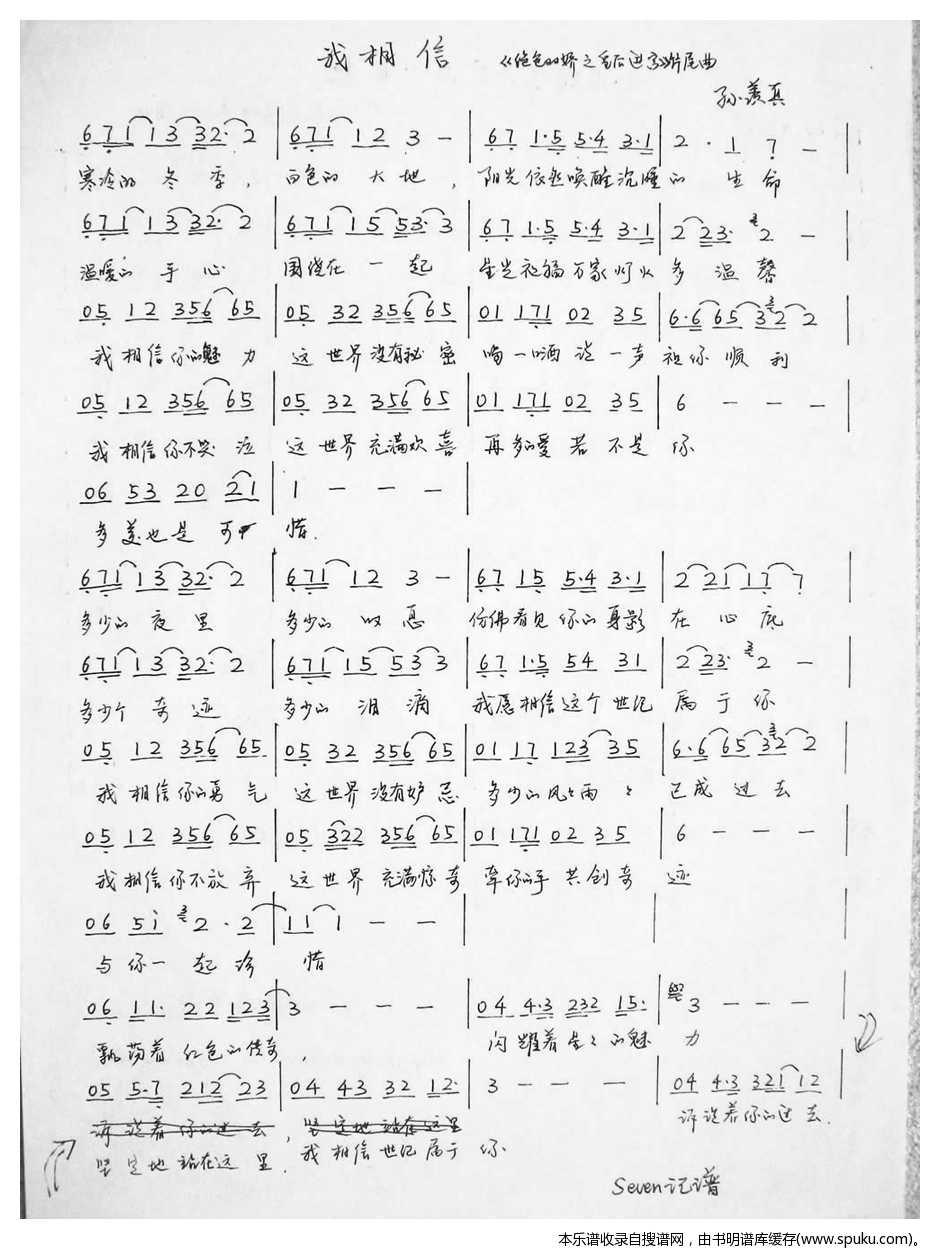 我相信 《绝色的娇之
孙羡真
6 7 1 1 3 3 2· 2 | 6 7 1 1 2 3 — | 6 7 1·5 5·4 3·1 | 2 · 1 7 — |
寒冷的冬季，白色的大地，阳光依然唤醒沉睡的生命
6 7 1 1 3 3 2· 2 | 6 7 1 1 5 5 3· 3 | 6 7 1·5 5·4 3·1 | 2 2 3· 2 — |
温暖的手心 围绕在一起 万家灯火多温馨
0 5 1 2 3 5 6 6 5 | 0 5 3 2 3 5 6 6 5 | 0 1 1 7 1 0 2 3 5 | 6·6 6 5 3 2 2 |
我相信你的魅力 这世界没有秘密 喝一口酒说一声祝你顺利
0 5 1 2 3 5 6 6 5 | 0 5 3 2 3 5 6 6 5 | 0 1 1 7 1 0 2 3 5 | 6 — — — |
我相信你不哭泣 这世界充满欢喜 再多的爱若不是你
0 6 5 3 2 0 2 1 | 1 — — — |
多美也是可惜.
6 7 1 1 3 3 2· 2 | 6 7 1 1 2 3 — | 6 7 1 5 5·4 3·1 | 2 2 1 1 7 7 |
多少的夜里 多少的叹息 仿佛看见你的身影在心底
6 7 1 1 3 3 2· 2 | 6 7 1 1 5 5 3 3 | 6 7 1·5 5 4 3 1 | 2 2 3· 2 — |
多少个奇迹 多少的泪滴 我愿相信这个世纪属于你
0 5 1 2 3 5 6 6 5 | 0 5 3 2 3 5 6 6 5 | 0 1 1 7 1 2 3 3 5 | 6·6 6 5 3 2 2 |
我相信你的勇气 这世界没有妒忌 多少的风风雨雨 已成过去
0 5 1 2 3 5 6 6 5 | 0 5 3 2 2 3 5 6 6 5 | 0 1 1 7 1 0 2 3 5 | 6 — — — |
我相信你不放弃 这世界充满惊奇 牵你的手共创奇迹
0 6 5 i 2 · 2 | 1 1 1 — — |
与你一起珍惜
0 6 1 1· 2 2 1 2 3 | 3 — — — | 0 4 4·3 2 3 2 1 5· | 3 — — — |
飘荡着红色的传奇， 闪耀着 的魅力
0 5 5·7 2 1 2 2 3 | 0 4 4 3 3 2 1 2· | 3 — — — | 0 4 4·3 3 2 1 1 2
诉说着你的过去，坚定地站在这里 诉说着你的过去.
坚定地站在这里. 我相信世纪属于你.
Seven记谱
本乐谱收录自搜谱网，由书明谱库缓存(www.spuku.com)。